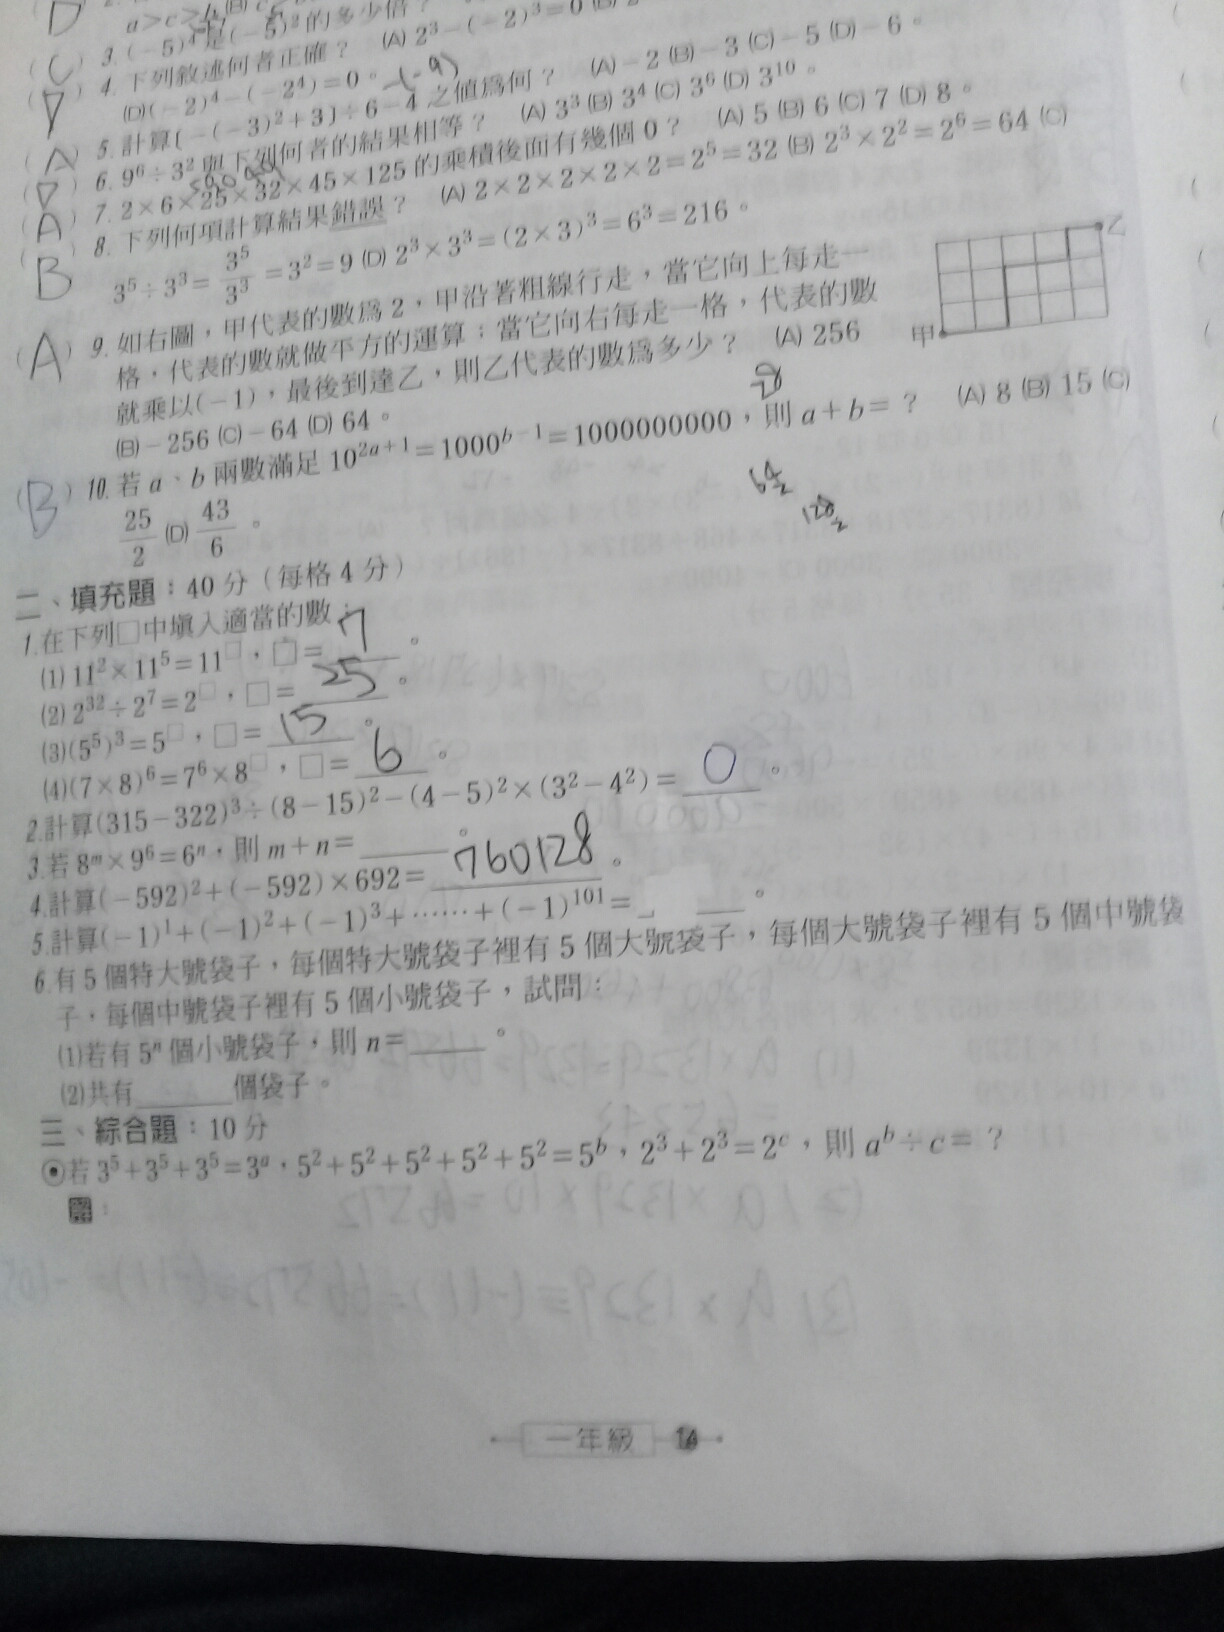 (C) 3. (−5)⁴是(−5)²的多少倍？
(D) 4. 下列敘述何者正確？ (A) 2³−(−2)³=0 (B)
(D)(−2)⁴−(−2⁴)=0。(-9)
(A) 5. 計算[−(−3)²+3]÷6−4 之值為何？ (A)−2 (B)−3 (C)−5 (D)−6。
(D) 6. 9⁶÷3² 與下列何者的結果相等？ (A) 3³ (B) 3⁴ (C) 3⁶ (D) 3¹⁰。
(A) 7. 2×6×25×32×45×125 的乘積後面有幾個 0？ (A) 5 (B) 6 (C) 7 (D) 8。
(B) 8. 下列何項計算結果錯誤？ (A) 2×2×2×2×2=2⁵=32 (B) 2³×2²=2⁶=64 (C)
3⁵÷3³=3⁵/3³=3²=9 (D) 2³×3³=(2×3)³=6³=216。
(A) 9. 如右圖，甲代表的數為 2，甲沿著粗線行走，當它向上每走一
格，代表的數就做平方的運算；當它向右每走一格，代表的數
就乘以(−1)，最後到達乙，則乙代表的數為多少？ (A) 256
(B)−256 (C)−64 (D) 64。
甲
乙
(B) 10. 若 a、b 兩數滿足 10²ᵃ⁺¹=1000ᵇ⁻¹=1000000000，則 a+b=？ (A) 8 (B) 15 (C)
25/2 (D) 43/6。
64
2
128
2
二、填充題：40 分（每格 4 分）
1.在下列□中填入適當的數：
(1) 11²×11⁵=11□，□= 7 。
(2) 2³²÷2⁷=2□，□= 25 。
(3)(5⁵)³=5□，□= 15 。
(4)(7×8)⁶=7⁶×8□，□= 6 。
2.計算(315−322)³÷(8−15)²−(4−5)²×(3²−4²)= 0 。
3.若 8ᵐ×9⁶=6ⁿ，則 m+n=______。
4.計算(−592)²+(−592)×692= 760128 。
5.計算(−1)¹+(−1)²+(−1)³+……+(−1)¹⁰¹=______。
6.有 5 個特大號袋子，每個特大號袋子裡有 5 個大號袋子，每個大號袋子裡有 5 個中號袋
子，每個中號袋子裡有 5 個小號袋子，試問：
(1)若有 5ⁿ 個小號袋子，則 n=______。
(2)共有______個袋子。
三、綜合題：10 分
◉若 3⁵+3⁵+3⁵=3ᵃ，5²+5²+5²+5²+5²=5ᵇ，2³+2³=2ᶜ，則 aᵇ÷c=？
解：
一年級 14